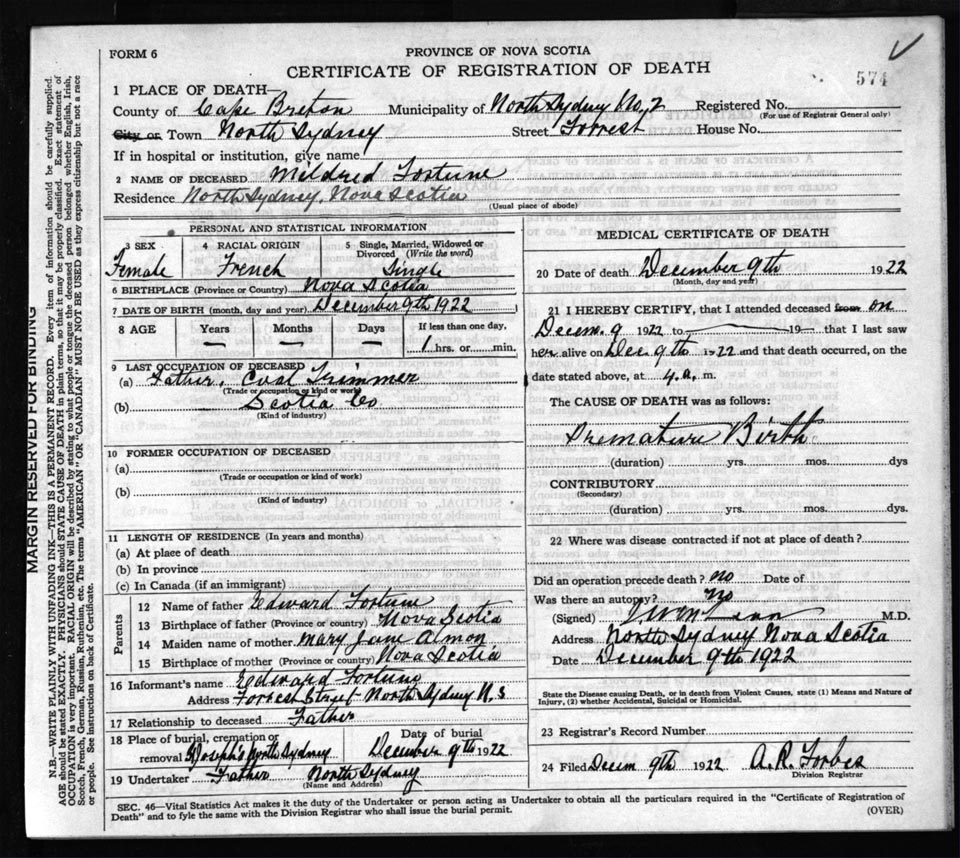 FORM 6
PROVINCE OF NOVA SCOTIA
CERTIFICATE OF REGISTRATION OF DEATH
574
1 PLACE OF DEATH—
County of Cape Breton Municipality of North Sydney No. 2 Registered No.
(For use of Registrar General only)
City or Town North Sydney Street Forrest House No.
If in hospital or institution, give name
2 NAME OF DECEASED Mildred Fortune
Residence North Sydney, Nova Scotia
(Usual place of abode)
PERSONAL AND STATISTICAL INFORMATION
3 SEX 4 RACIAL ORIGIN 5 Single, Married, Widowed or Divorced (Write the word)
Female French Single
6 BIRTHPLACE (Province or Country) Nova Scotia
7 DATE OF BIRTH (month, day and year) December 9th 1922
8 AGE Years Months Days If less than one day,
— — — 1 hrs. or min.
9 LAST OCCUPATION OF DECEASED
(a) Father, Coal Trimmer
(Trade or occupation or kind of work)
(b) Scotia Co
(Kind of industry)
10 FORMER OCCUPATION OF DECEASED
(a)
(Trade or occupation or kind of work)
(b)
(Kind of industry)
11 LENGTH OF RESIDENCE (In years and months)
(a) At place of death
(b) In province
(c) In Canada (if an immigrant)
Parents
12 Name of father Edward Fortune
13 Birthplace of father (Province or country) Nova Scotia
14 Maiden name of mother Mary Jane Almon
15 Birthplace of mother (Province or country) Nova Scotia
16 Informant's name Edward Fortune
Address Forrest Street North Sydney N. S
17 Relationship to deceased Father
18 Place of burial, cremation or removal Date of burial
North Sydney December 9th 1922
19 Undertaker Father North Sydney
(Name and Address)
MEDICAL CERTIFICATE OF DEATH
20 Date of death December 9th 1922
(Month, day and year)
21 I HEREBY CERTIFY, that I attended deceased from on
Decem. 9 1922 to 19 that I last saw
her alive on Dec. 9th 1922 and that death occurred, on the
date stated above, at 4. a. m.
The CAUSE OF DEATH was as follows:
Premature Birth
(duration) yrs. mos. dys
CONTRIBUTORY
(Secondary)
(duration) yrs. mos. dys.
22 Where was disease contracted if not at place of death?
Did an operation precede death? no Date of
Was there an autopsy? no
(Signed) M.D.
Address North Sydney Nova Scotia
Date December 9th 1922
State the Disease causing Death, or in death from Violent Causes, state (1) Means and Nature of
Injury, (2) whether Accidental, Suicidal or Homicidal.
23 Registrar's Record Number
24 Filed Decem 9th 1922 A. R. Forbes
Division Registrar
SEC. 46—Vital Statistics Act makes it the duty of the Undertaker or person acting as Undertaker to obtain all the particulars required in the "Certificate of Registration of
Death" and to fyle the same with the Division Registrar who shall issue the burial permit.
(OVER)
MARGIN RESERVED FOR BINDING
N.B.—WRITE PLAINLY WITH UNFADING INK—THIS IS A PERMANENT RECORD. Every item of information should be carefully supplied.
AGE should be stated EXACTLY. PHYSICIANS should STATE CAUSE OF DEATH in plain terms, so that it may be properly classified. Exact statement of
OCCUPATION is very important. RACIAL ORIGIN will be described by stating to what people or tongue the deceased person belonged, whether English, Irish,
Scotch, French, German, Russian, Ruthenian, etc. The terms "AMERICAN" OR "CANADIAN" MUST NOT BE USED as they express citizenship but not a race
or people. See instructions on back of Certificate.